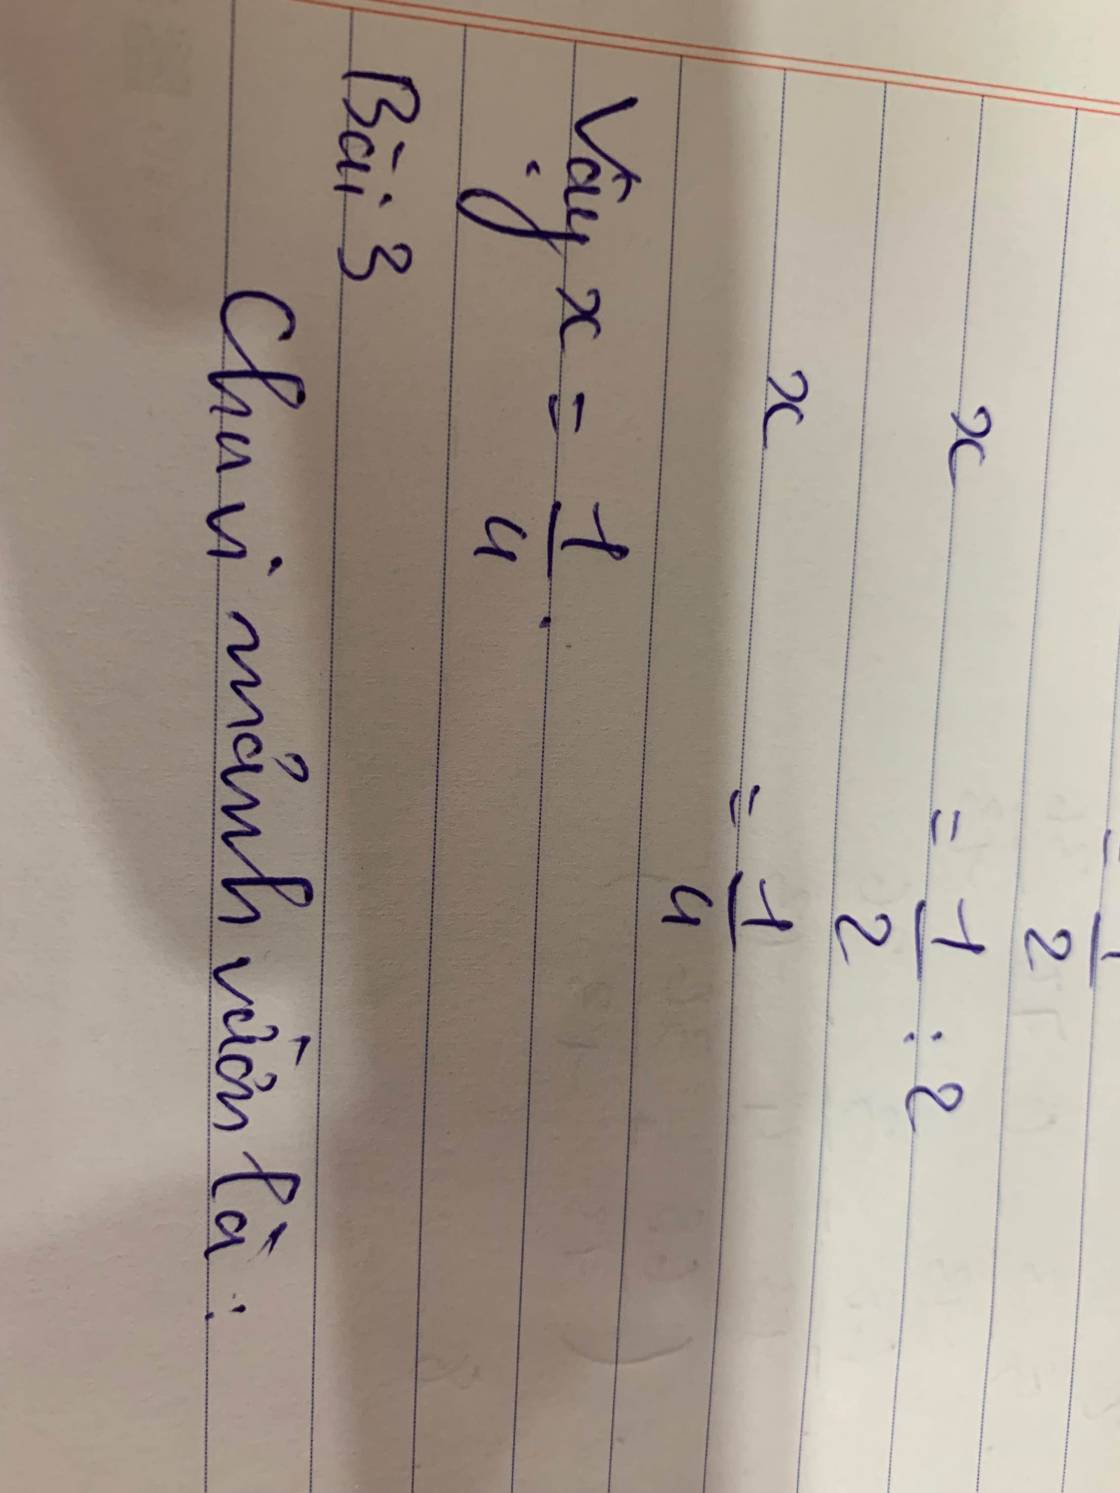 = 1/2
x = 1/2 : 2
x = 1/4
Vậy x = 1/4.
Bài 3
Chu vi mảnh vườn là :